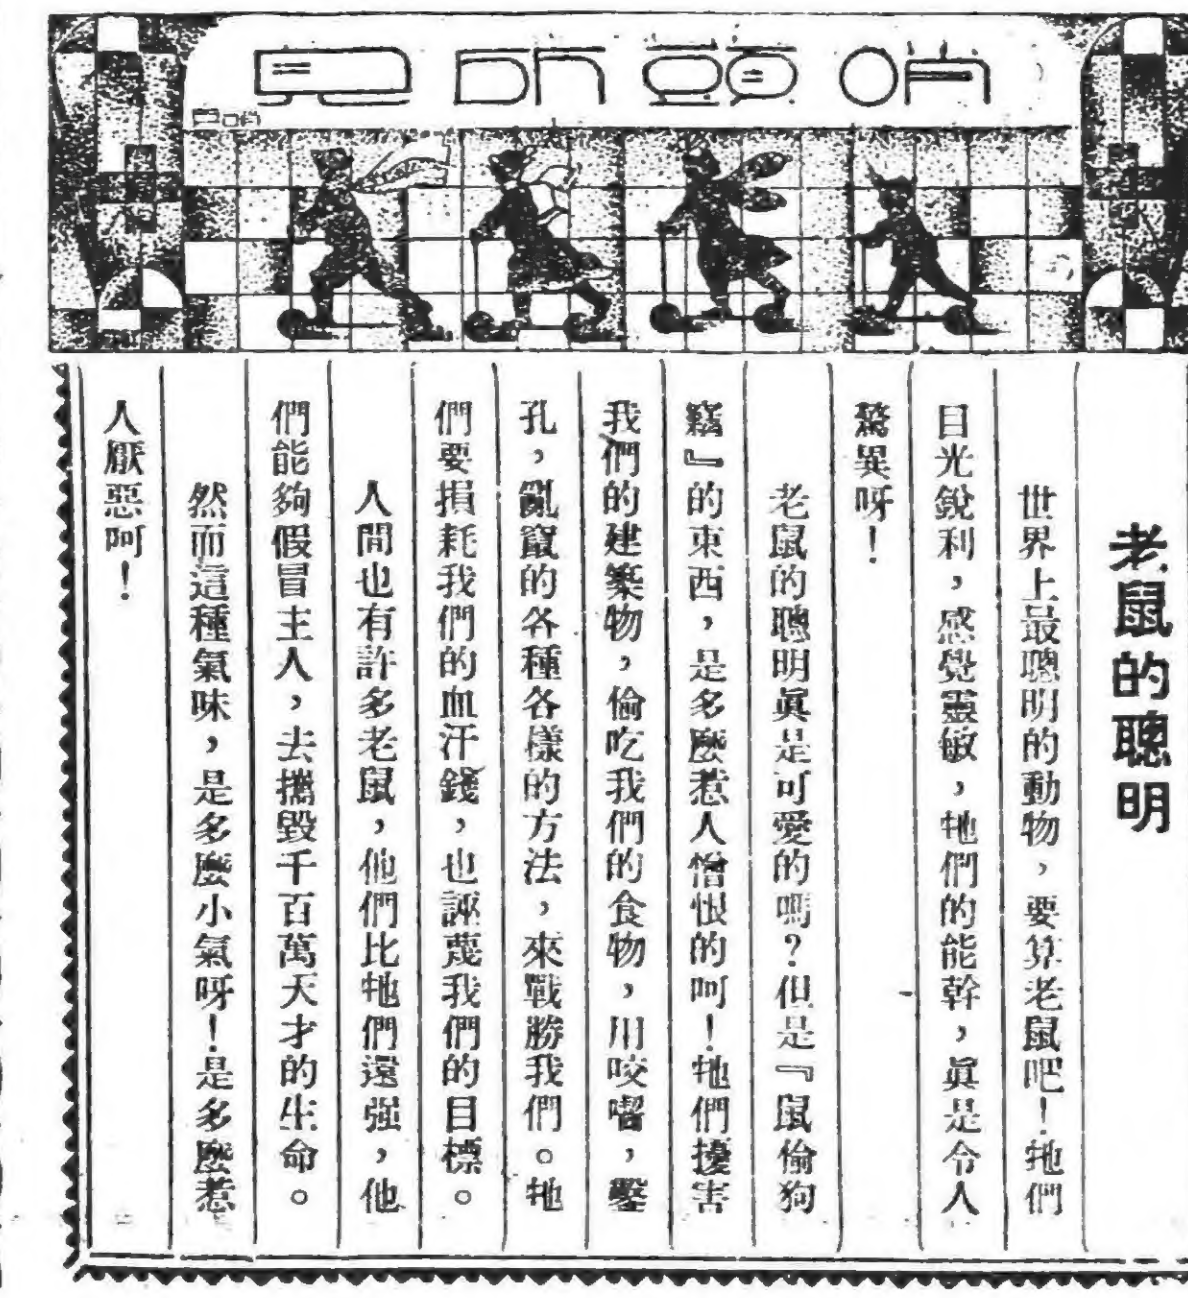 頭所見
老鼠的聰明
世界上最聰明的動物，要算老鼠吧！牠們
目光銳利，感覺靈敏，牠們的能幹，眞是令人
驚異呀！
老鼠的聰明眞是可愛的嗎？但是『鼠偷狗
竊』的東西，是多麼惹人憎恨的呵！牠們擾害
我們的建築物，偷吃我們的食物，用咬嚙，鑿
孔，亂竄的各種各樣的方法，來戰勝我們。牠
們要損耗我們的血汗錢，也誣蔑我們的目標。
人間也有許多老鼠，他們比牠們還强，他
們能夠假冒主人，去攜毀千百萬天才的生命。
然而這種氣味，是多麼小氣呀！是多麼惹
人厭惡呵！